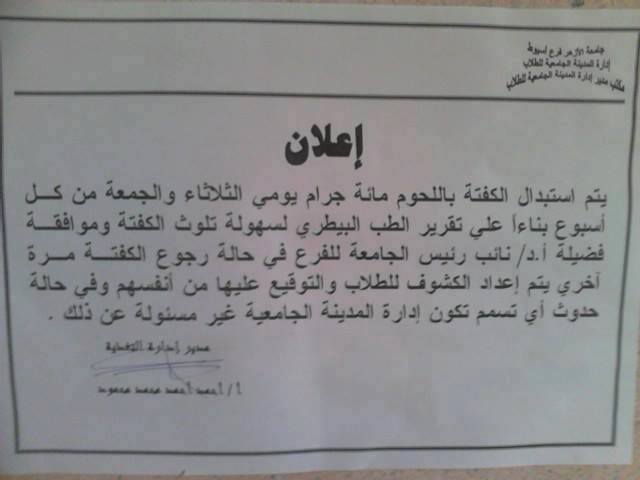 جامعة الأزهر فرع أسيوط
إدارة المدينة الجامعية للطلاب
مكتب مدير إدارة المدينة الجامعية للطلاب
إعلان
يتم استبدال الكفتة باللحوم مائة جرام يومي الثلاثاء والجمعة من كل
أسبوع بناءاً علي تقرير الطب البيطري لسهولة تلوث الكفتة وموافقة
فضيلة أ.د/ نائب رئيس الجامعة للفرع في حالة رجوع الكفتة مرة
آخري يتم إعداد الكشوف للطلاب والتوقيع عليها من أنفسهم وفي حالة
حدوث أي تسمم تكون إدارة المدينة الجامعية غير مسئولة عن ذلك .
مدير إدارة التغذية
أ/ أحمد أحمد محمد محمود